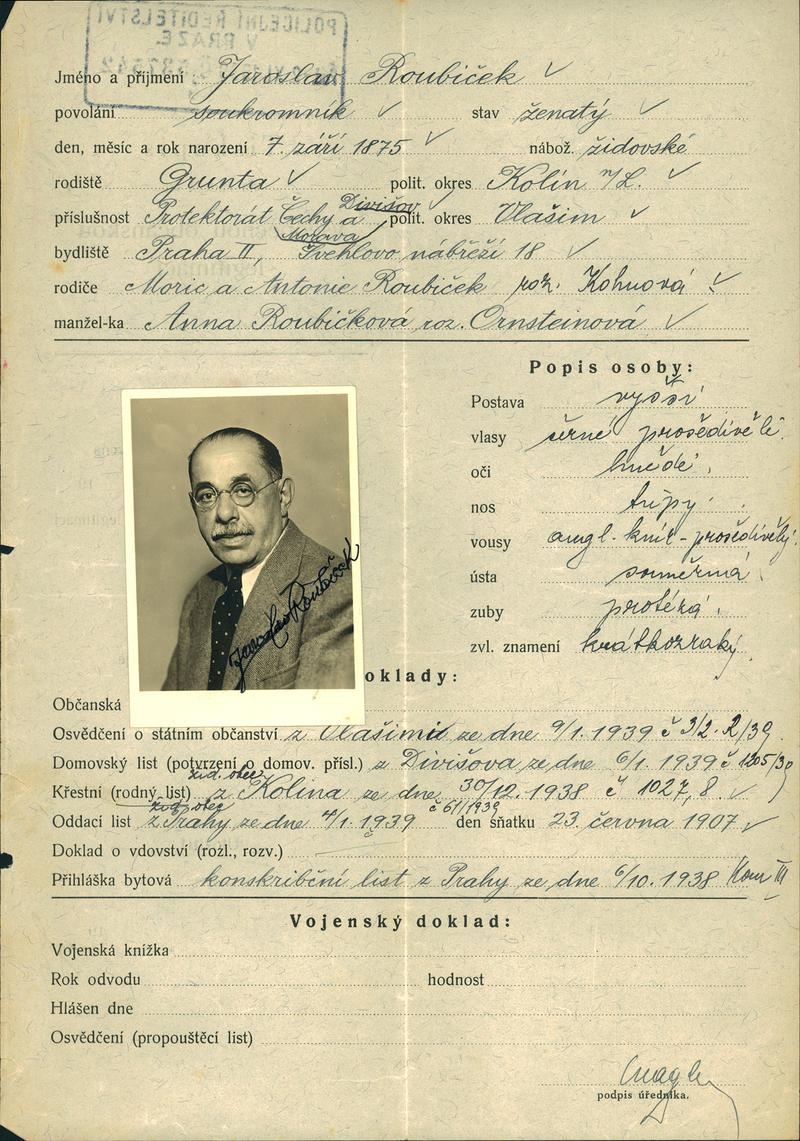 POLICEJNÍ ŘEDITELSTVÍ
V PRAZE.
Jméno a příjmení Jaroslav Roubíček
povolání soukromník stav ženatý
den, měsíc a rok narození 7. září 1875 nábož. židovské
rodiště Grunta polit. okres Kolín n/L.
Divišov
příslušnost Protektorát Čechy a Morava polit. okres Vlašim
bydliště Praha II, Švehlovo nábřeží 18
rodiče Moric a Antonie Roubíček roz. Kohnová
manžel-ka Anna Roubíčková roz. Ornsteinová
Popis osoby:
Postava vyšší
vlasy černé prošedivělé
oči hnědé
nos tupý
vousy angl. knír - prošedivělý
ústa souměrná
zuby protézá
zvl. znamení krátkozraký
Jaroslav Roubíček
oklady:
Občanská
Osvědčení o státním občanství z Vlašimi ze dne 9/1. 1939 č 3/2. 2/39
Domovský list (potvrzení o domov. přísl.) z Divišova ze dne 6/1. 1939 č 1205/39
žid. obec
Křestní (rodný list) z Kolína ze dne 30/12. 1938 č 1027, 8.
žid. obec č 61/1939
Oddací list z Prahy ze dne 4/1. 1939 den sňatku 23. června 1907
Doklad o vdovství (rozl., rozv.)
Přihláška bytová konskribční list z Prahy ze dne 6/10. 1938 Kom III
Vojenský doklad:
Vojenská knížka
Rok odvodu hodnost
Hlášen dne
Osvědčení (propouštěcí list)
podpis úředníka.